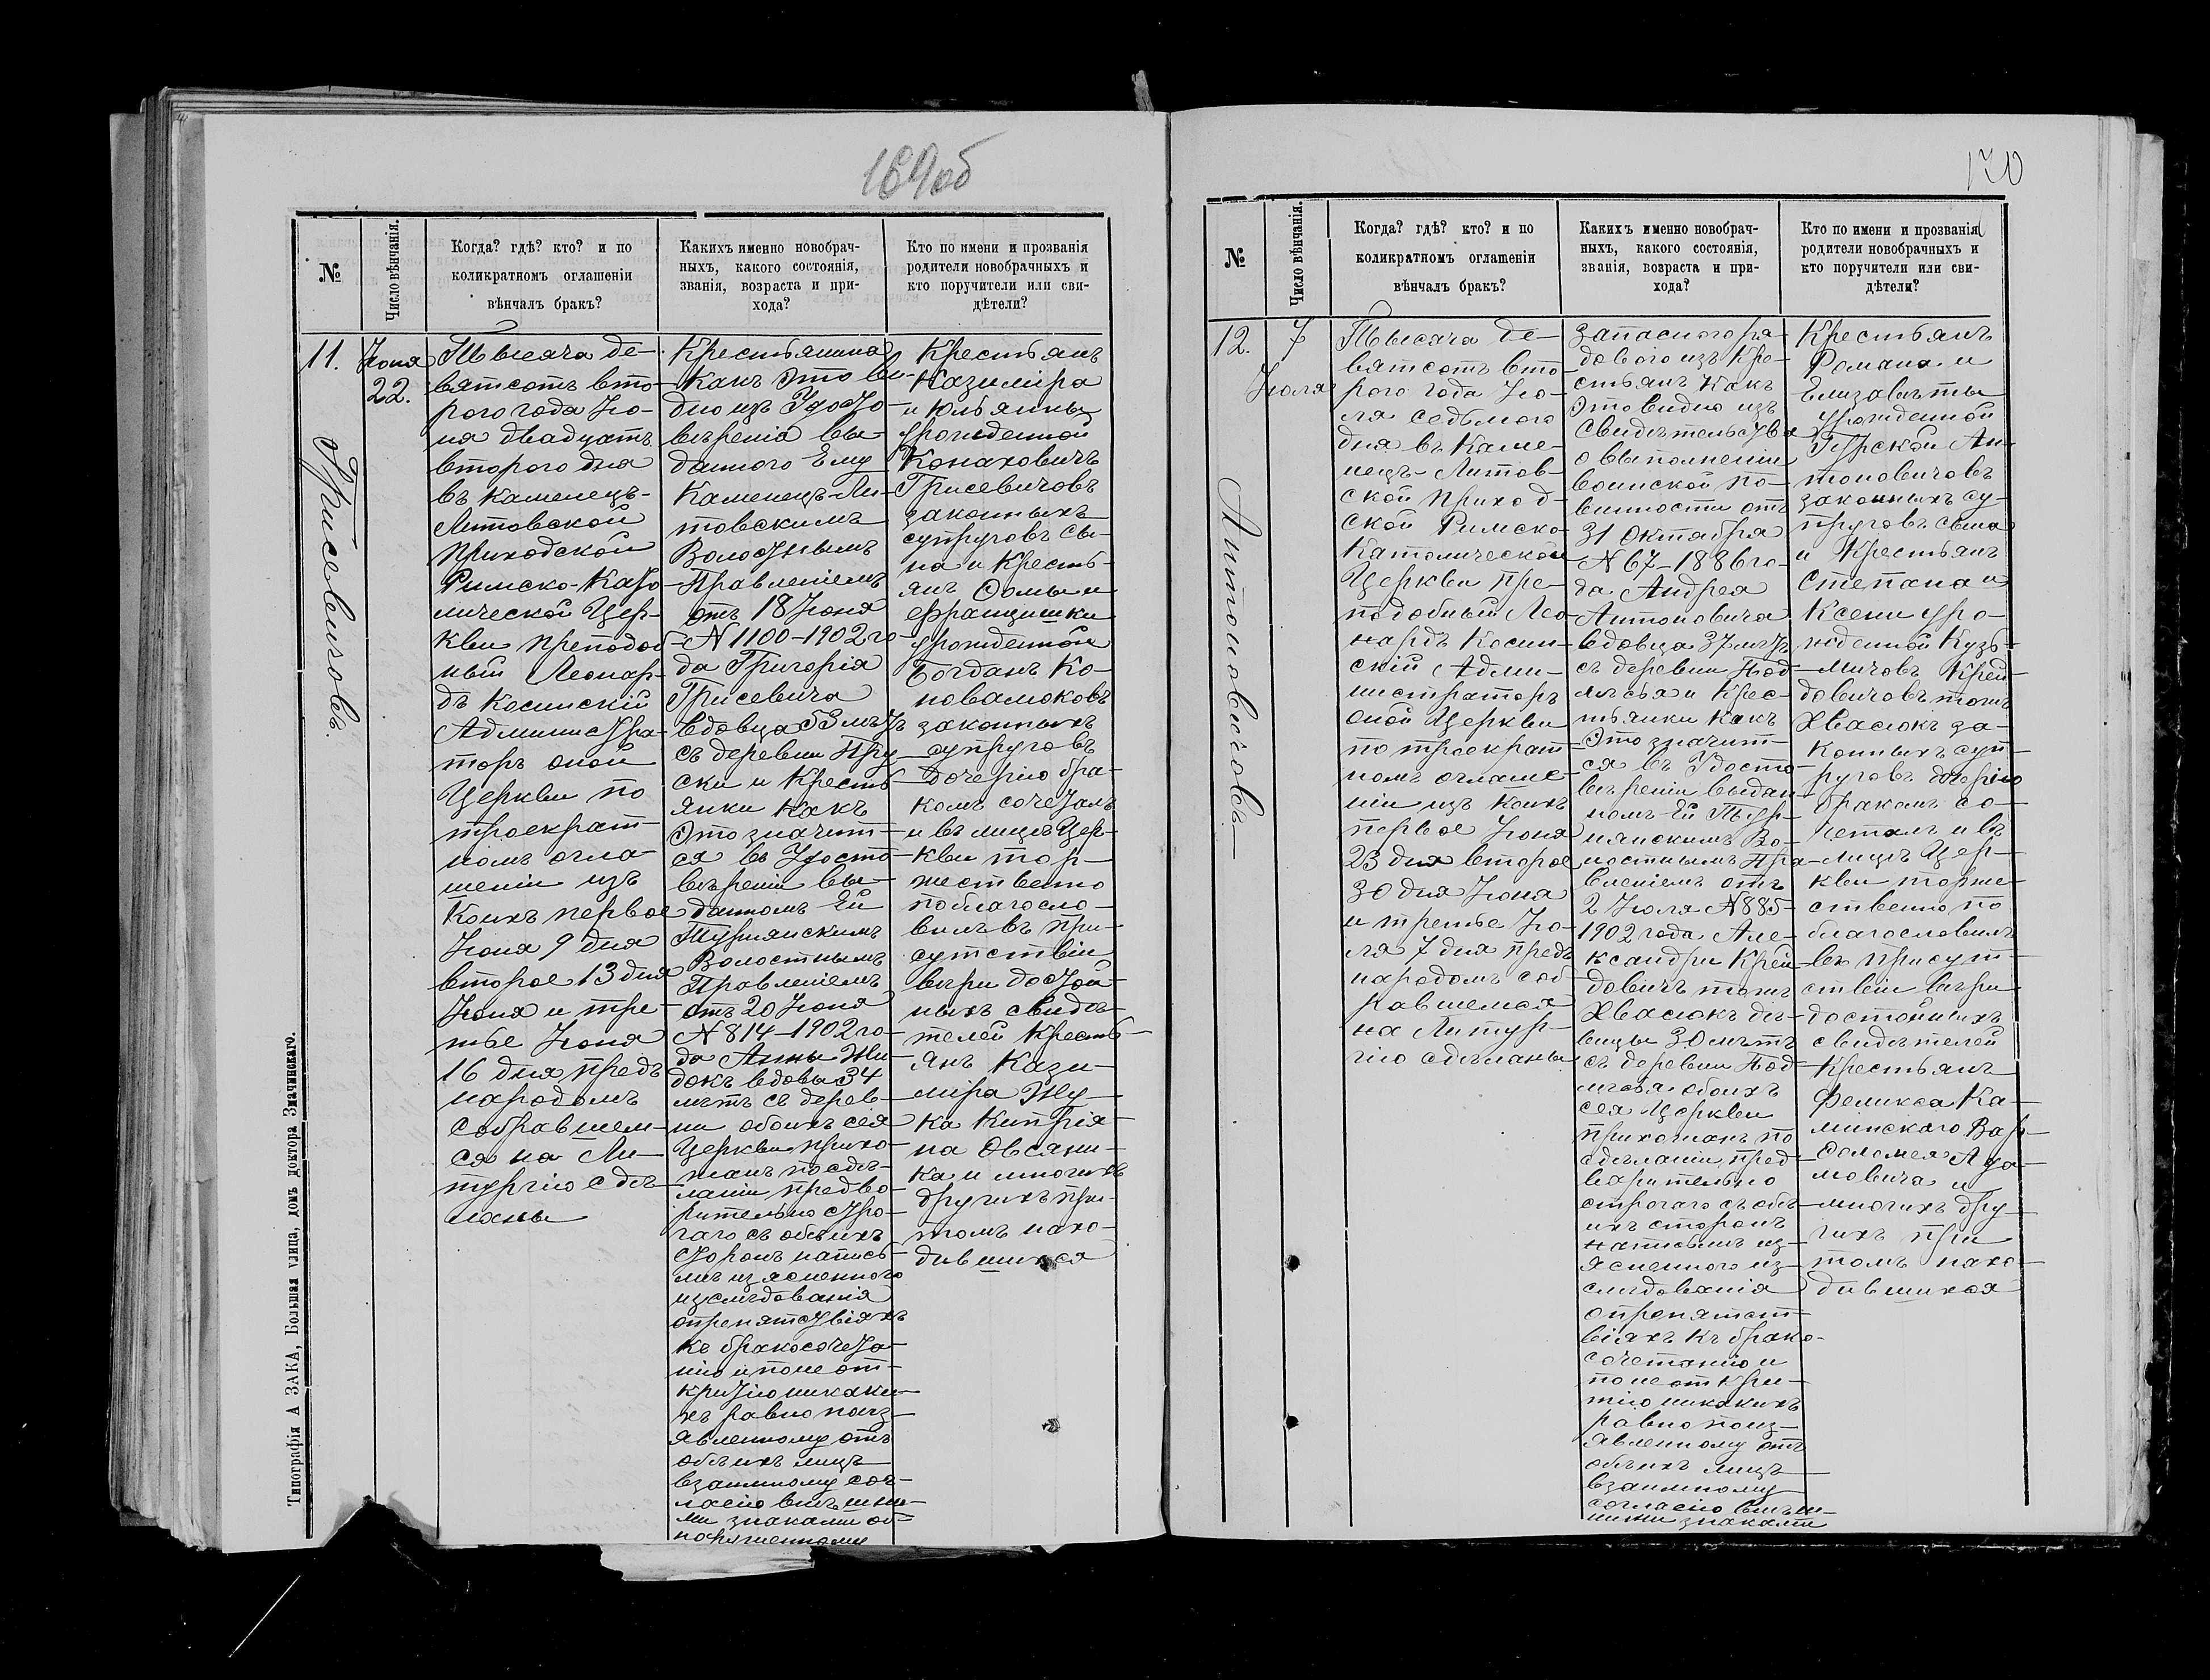 169об
№
Число вѣнчанія.
Когда? гдѣ? кто? и по
коликратномъ оглашеніи
вѣнчалъ бракъ?
Какихъ именно новобрач-
ныхъ, какого состоянія,
званія, возраста и при-
хода?
Кто по имени и прозванія
родители новобрачныхъ и
кто поручители или сви-
дѣтели?
11.
Іюня
22.
Грисевичовъ.
Тысяча де-
вятсотъ вто-
рого года Ію-
ня двадцать
второго дня
въ Каменецъ-
Литовской
приходской
Римско-Като-
лической Цер-
кви преподоб-
ный Леонар-
дъ Косинскій
Администра-
торъ оной
Церкви по
троекрат-
номъ огла-
шеніи изъ
коихъ первое
Іюня 9 дня
второе 13 дня
Іюня и тре-
тье Іюня
16 дня предъ
народомъ
собравшем-
ся на Ли-
тургію сдѣ-
ланы
Крестьянина
какъ это ви-
дно изъ Удосто-
вѣренія вы-
данного Ему
Каменецъ-Ли-
товскимъ
Волостнымъ
Правленіемъ
отъ 18 Іюня
N 1100-1902 го-
да Григорія
Грисевича
вдовца 53 лѣтъ
съ деревни Пру-
ски и Кресть-
янки какъ
это значит-
ся въ Удосто-
вѣреніи вы-
данномъ Ей
Турнянскимъ
Волостнымъ
Правленіемъ
отъ 20 Іюня
N 814-1902 го-
да Анны Жи-
докъ вдовы 34
лѣтъ съ дерев-
ни обоихъ сея
Церкви прихо-
жанъ по сдѣ-
ланіи предва-
рительно стро-
гаго съ обѣихъ
сторонъ написъ-
мѣ изясненного
изслѣдованія
опрепятствіяхъ
къ бракосочета-
нію и по не от-
критію никаки-
хъ равно по из-
явленному отъ
обѣихъ лицъ
взаимному сог-
ласію внѣшни-
ми знаками об-
наруженному
Крестьянъ
Казиміра
и Юльянны
урожденной
Конаховичъ
Грисевичовъ
законныхъ
супруговъ сы-
на и Кресть-
янъ Фомы и
Францишки
урожденной
Богданъ Ко-
новалюковъ
законныхъ
супруговъ
дочерію бра-
комъ сочеталъ
и въ лицѣ Цер-
кви тор-
жественно
поблагосло-
вилъ въ при-
сутствіи
вѣри достой-
ныхъ свидѣ-
телей Кресть-
янъ Кази-
міра Жу-
ка Кипрія-
на Овсяни-
ка и многихъ
другихъ при
томъ нахо-
дившихся
Типографія А ЗАКА, Большая улица, домъ доктора Значинскаго.
170
№
Число вѣнчанія.
Когда? гдѣ? кто? и по
коликратномъ оглашеніи
вѣнчалъ бракъ?
Какихъ именно новобрач-
ныхъ, какого состоянія,
званія, возраста и при-
хода?
Кто по имени и прозванія
родители новобрачныхъ и
кто поручители или сви-
дѣтели?
12.
7
Іюля
Антоновичовъ
Тысяча де-
вятсотъ вто-
рого года Ію-
ля седьмого
дня въ Каме-
нецъ-Литов-
ской приход-
ской Римско-
Католической
Церкви пре-
подобный Лео-
нардъ Косин-
скій Адми-
нистраторъ
оной Церкви
по троекрат-
номъ оглаше-
ніи изъ коихъ
первое Іюня
23 дня второе
30 дня Іюня
и третье Ію-
ля 7 дня предъ
народомъ соб-
равшемся
на Литур-
гію сдѣланы
запасного ря-
дового изъ Кре-
стьянъ какъ
это видно изъ
свидѣтельства
о выполненіи
воинской по-
винности отъ
31 Октября
N 67-1886 го-
да Андрея
Антоновича
вдовца 37 лѣтъ
съ деревни Под-
лѣсья и Крес-
тьянки какъ
это значит-
ся въ Удосто-
вѣреніи выдан-
номъ Ей Тур-
нянскимъ Во-
лостнымъ Пра-
вленіемъ отъ
2 Іюля N 885-
1902 года Але-
ксандри Крей-
довичъ тожъ
Хвасюкъ дѣ-
вицы 30 лѣтъ
съ деревни Под-
лѣсья обоихъ
сея Церкви
прихожанъ по
сдѣланіи пред-
варительно
строгаго съ обѣ-
ихъ сторонъ
написьмѣ из-
ясненного из-
слѣдованія
опрепятст-
віяхъ къ брако-
сочетанію и
по не откри-
тію никакихъ
равно по из-
явленному отъ
обѣихъ лицъ
взаимному
согласію внѣш-
ними знаками
Крестьянъ
Романа и
Елизаветы
урожденной
Гурской Ан-
тоновичовъ
законныхъ су-
пруговъ сына
и Крестьянъ
Степана и
Ксени уро-
жденной Кузь-
мичовъ Крей-
довичовъ тожъ
Хвасюкъ за-
конныхъ суп-
руговъ дочерію
бракомъ со-
четалъ и въ
лицѣ Цер-
кви торже-
ственно по
благословилъ
въ присут-
ствіи вѣри
достойныхъ
свидѣтелей
Крестьянъ
Феликса Ка-
минского Вар-
фоломея Ада-
мовича и
многихъ дру-
гихъ при
томъ нахо-
дившихся